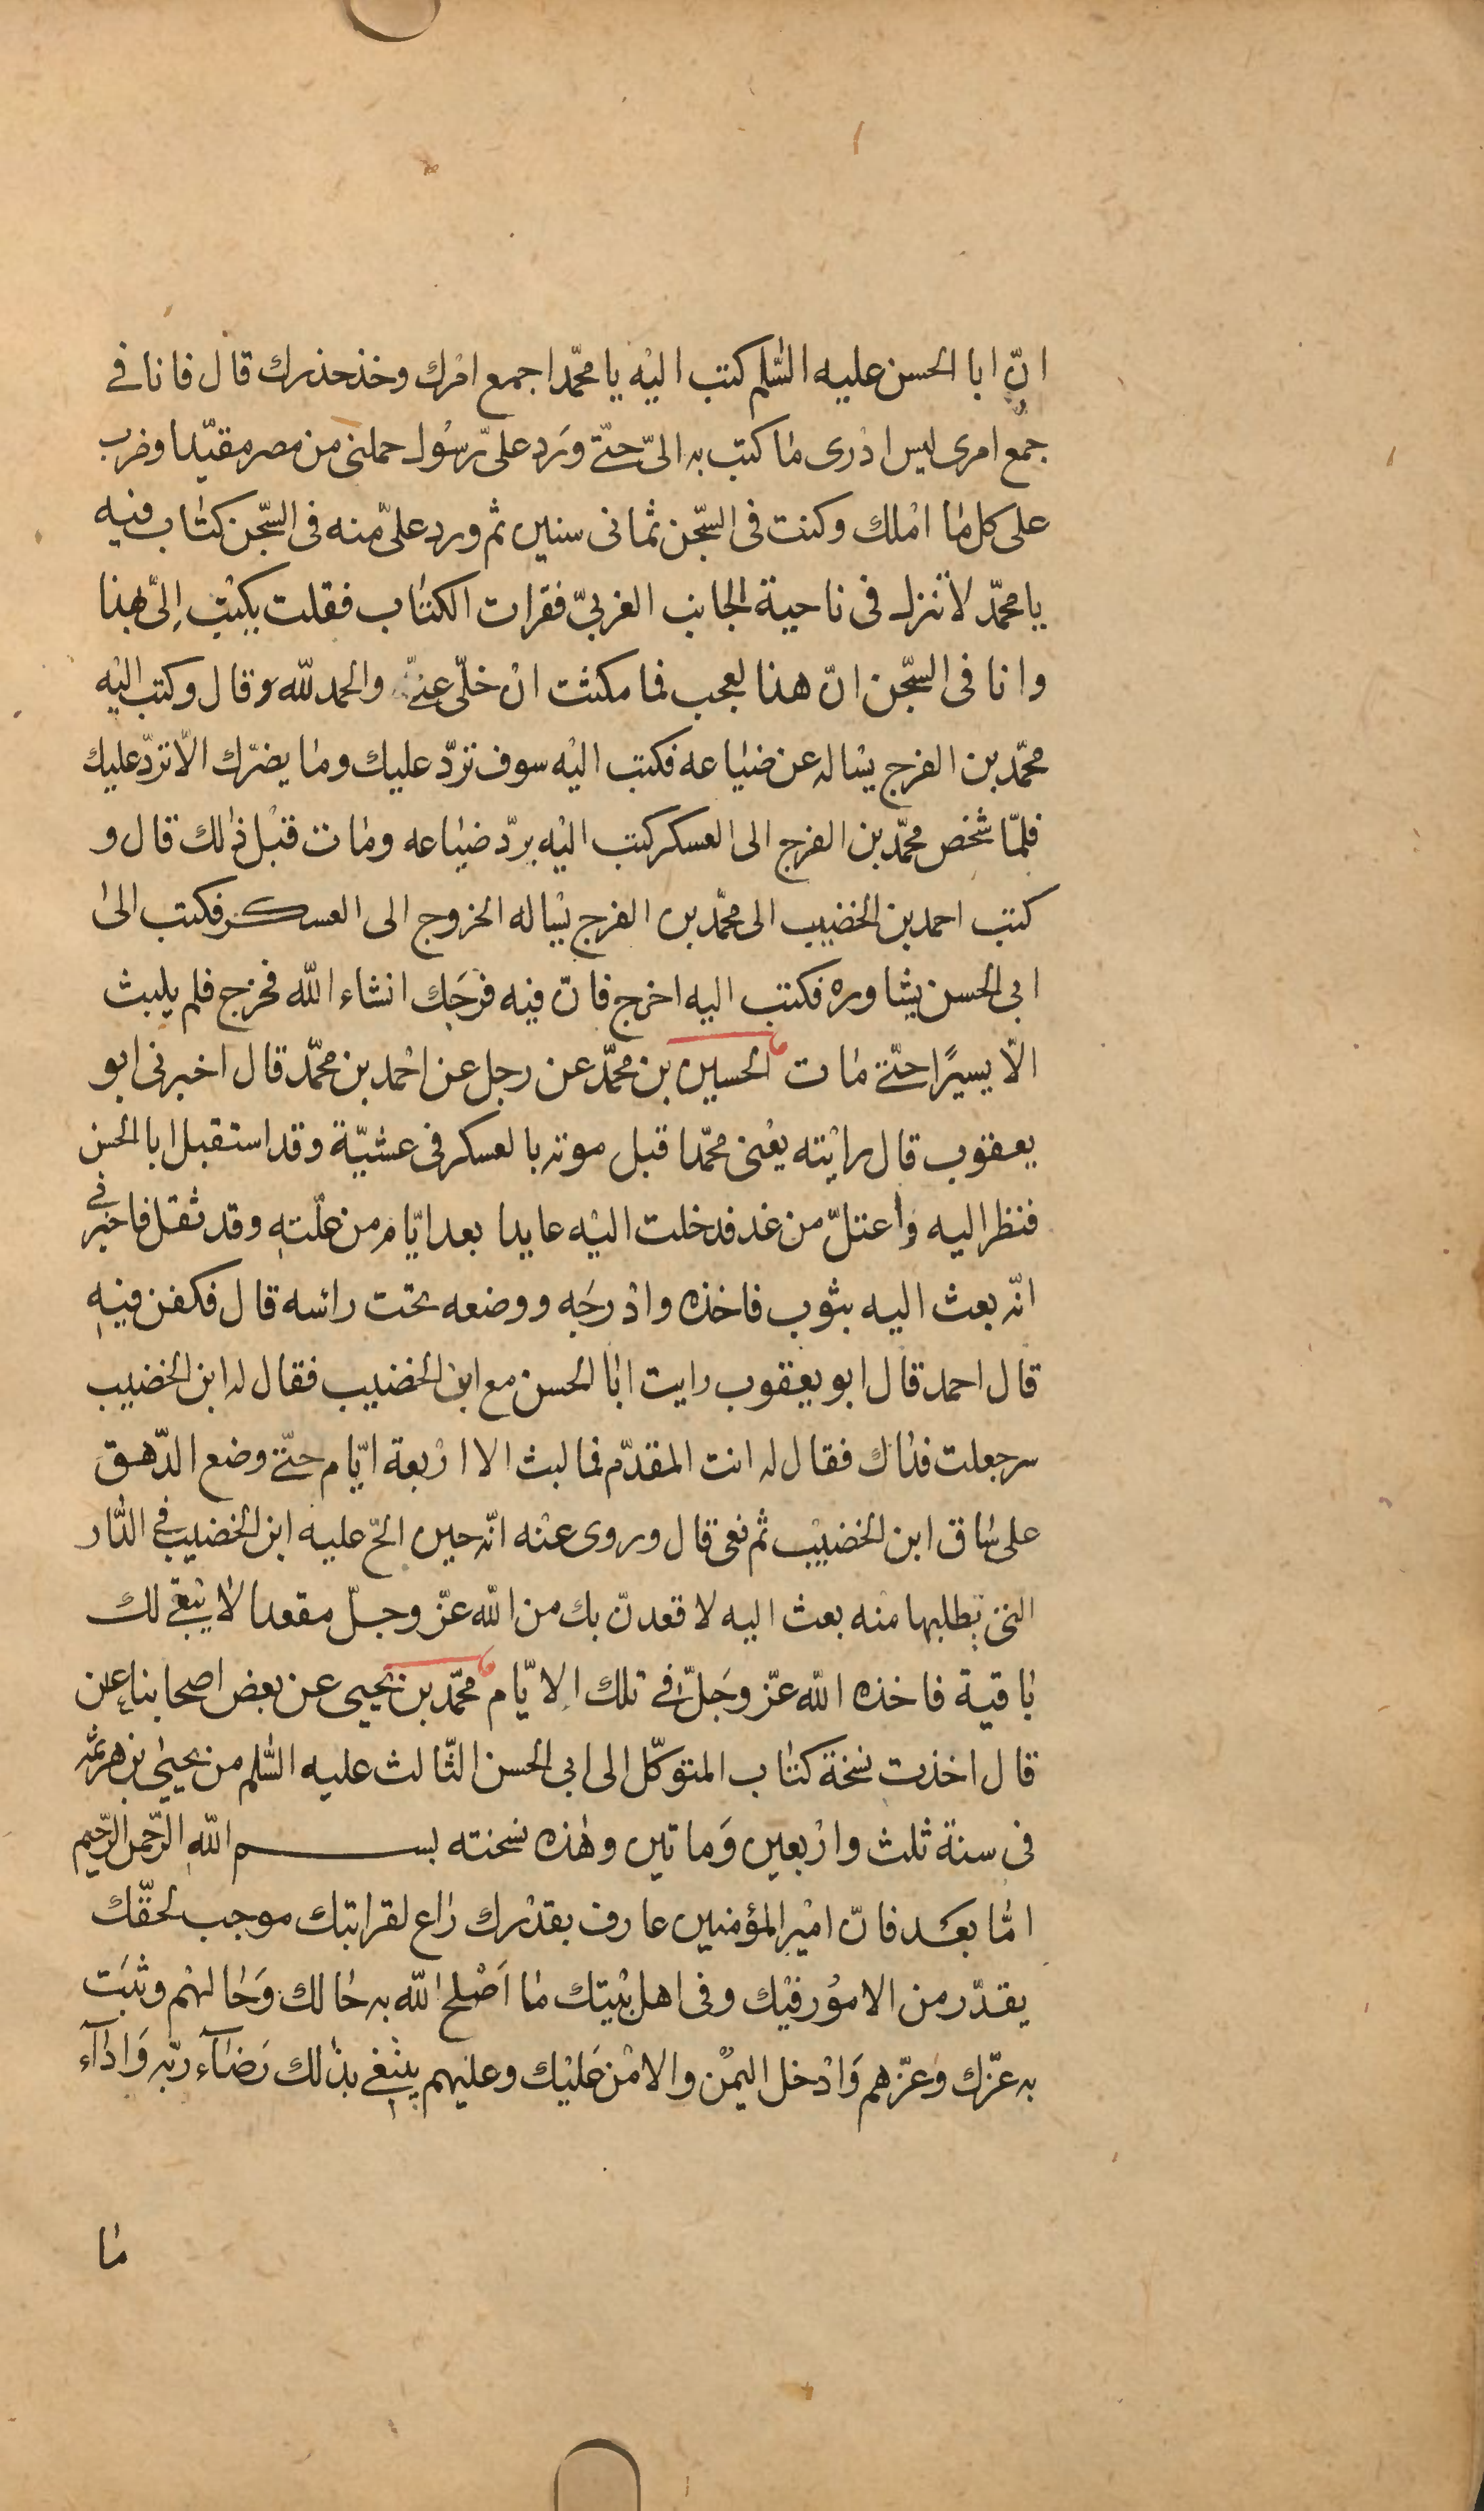 انّ ابا الحسن عليه السّلم كتب اليْه يا محمّد اجمع امْرك وخذ حذرك قال فانا فے
جمع امرى ليس ادْرى مٰا كتب به الىّ حتّے وَرَد علىّ رسُول حملنى من مصر مقيّدا وضرب
على كل مٰا امْلك وكنت فى السّجن ثمانى سنين ثم ورد علىّ منه فى السّجن كتٰاب فيه
يا محمّد لا تنزل فى ناحية الجانب الغربىّ فقرات الكتٰاب فقلت يكتب اِلىّ هذا
وانا فى السّجن انّ هذا لعجب فما مكثت انْ خلّى عنّے والحمد للّه وقال وكتب اليْه
محمّد بن الفرج يسٰاله عن ضيٰاعه فكتب اليْه سوف تردّ عليك ومٰا يضرّك الّا تردّ عليك
فلمّا شخص محمّد بن الفرج الى العسكر كتب اليْه بردّ ضيٰاعه ومٰات قبْل ذٰلك قال و
كتب احمد بن الخضيب الى محمّد بن الفرج يسٰاله الخروج الى العسكر فكتب الىٰ
ابى الحسن يشاوره فكتب اليه اخرج فانّ فيه فرَجَك انشاء اللّه فخرج فلم يلبث
الّا يسيرًا حتّے مٰات الحسين بن محمّد عن رجل عن احْمد بن محمّد قال اخبرنى ابو
يعقوب قال رايْته يعْنى محمّدا قبل موته بالعسكر فى عشيّة وقد استقبل ابا الحسن
فنظر اليه واعتلّ من غد فدخلت اليْه عايدا بعد ايّام من علّته وقد ثقل فاخبرنے
انّه بعث اليه بثوب فاخذه وادْرجَه ووضعه تحت رأسه قال فكفن فيه
قال احمد قال ابو يعقوب رايت ابٰا الحسن مع ابن الخضيب فقال له ابن الخضيب
سر جعلت فداك فقال له انت المقدّم فما لبث الا ارْبعة ايّام حتّے وضع الدّهق
على سٰاق ابن الخضيْب ثم نعى قال وروى عنْه انّه حين الحّ عليه ابن الخضيب فے الدّار
التى يطلبها منه بعث اليه لاقعدنّ بك من اللّه عزّ وجلّ مقعدا لٰا يبْقے لك
بٰاقية فاخذه اللّه عزّ وجَلّ فے تلك الايّام محمّد بن يحيى عن بعض اصحابنا عن
قال اخذت نسخة كتٰاب المتوكّل الى ابى الحسن الثّالث عليه السّلم من يحيىٰ بن هرثمه
فى سنة ثلث وارْبعين وَماتين وهٰذه نسخته بسم اللّه الرّحمن الرّحيم
امّٰا بعَد فانّ اميْر المؤمنين عارف بقدْرك رٰاع لقرابتك موجب لحقّك
يقدّر من الامُور فيْك وفى اهل بيْتك مٰا اَصْلح اللّه به حٰالك وَحٰالهْم وثبَت
به عزّك وَعزّهم وَادْخل اليمْن والامْن عَليْك وعليْهم يبْتغى بذٰلك رَضٰاۤء ربّه وَادٰاۤء
مٰا